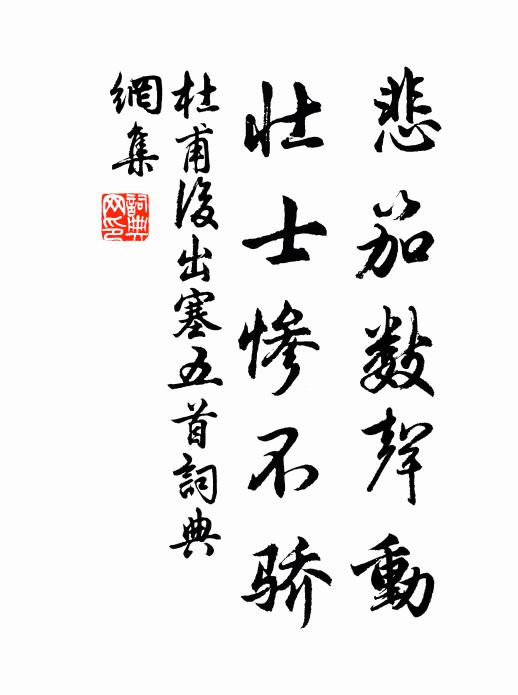 悲笳数聲動
壮士惨不骄
杜甫後出塞五首詞典
網集
詞典
网印